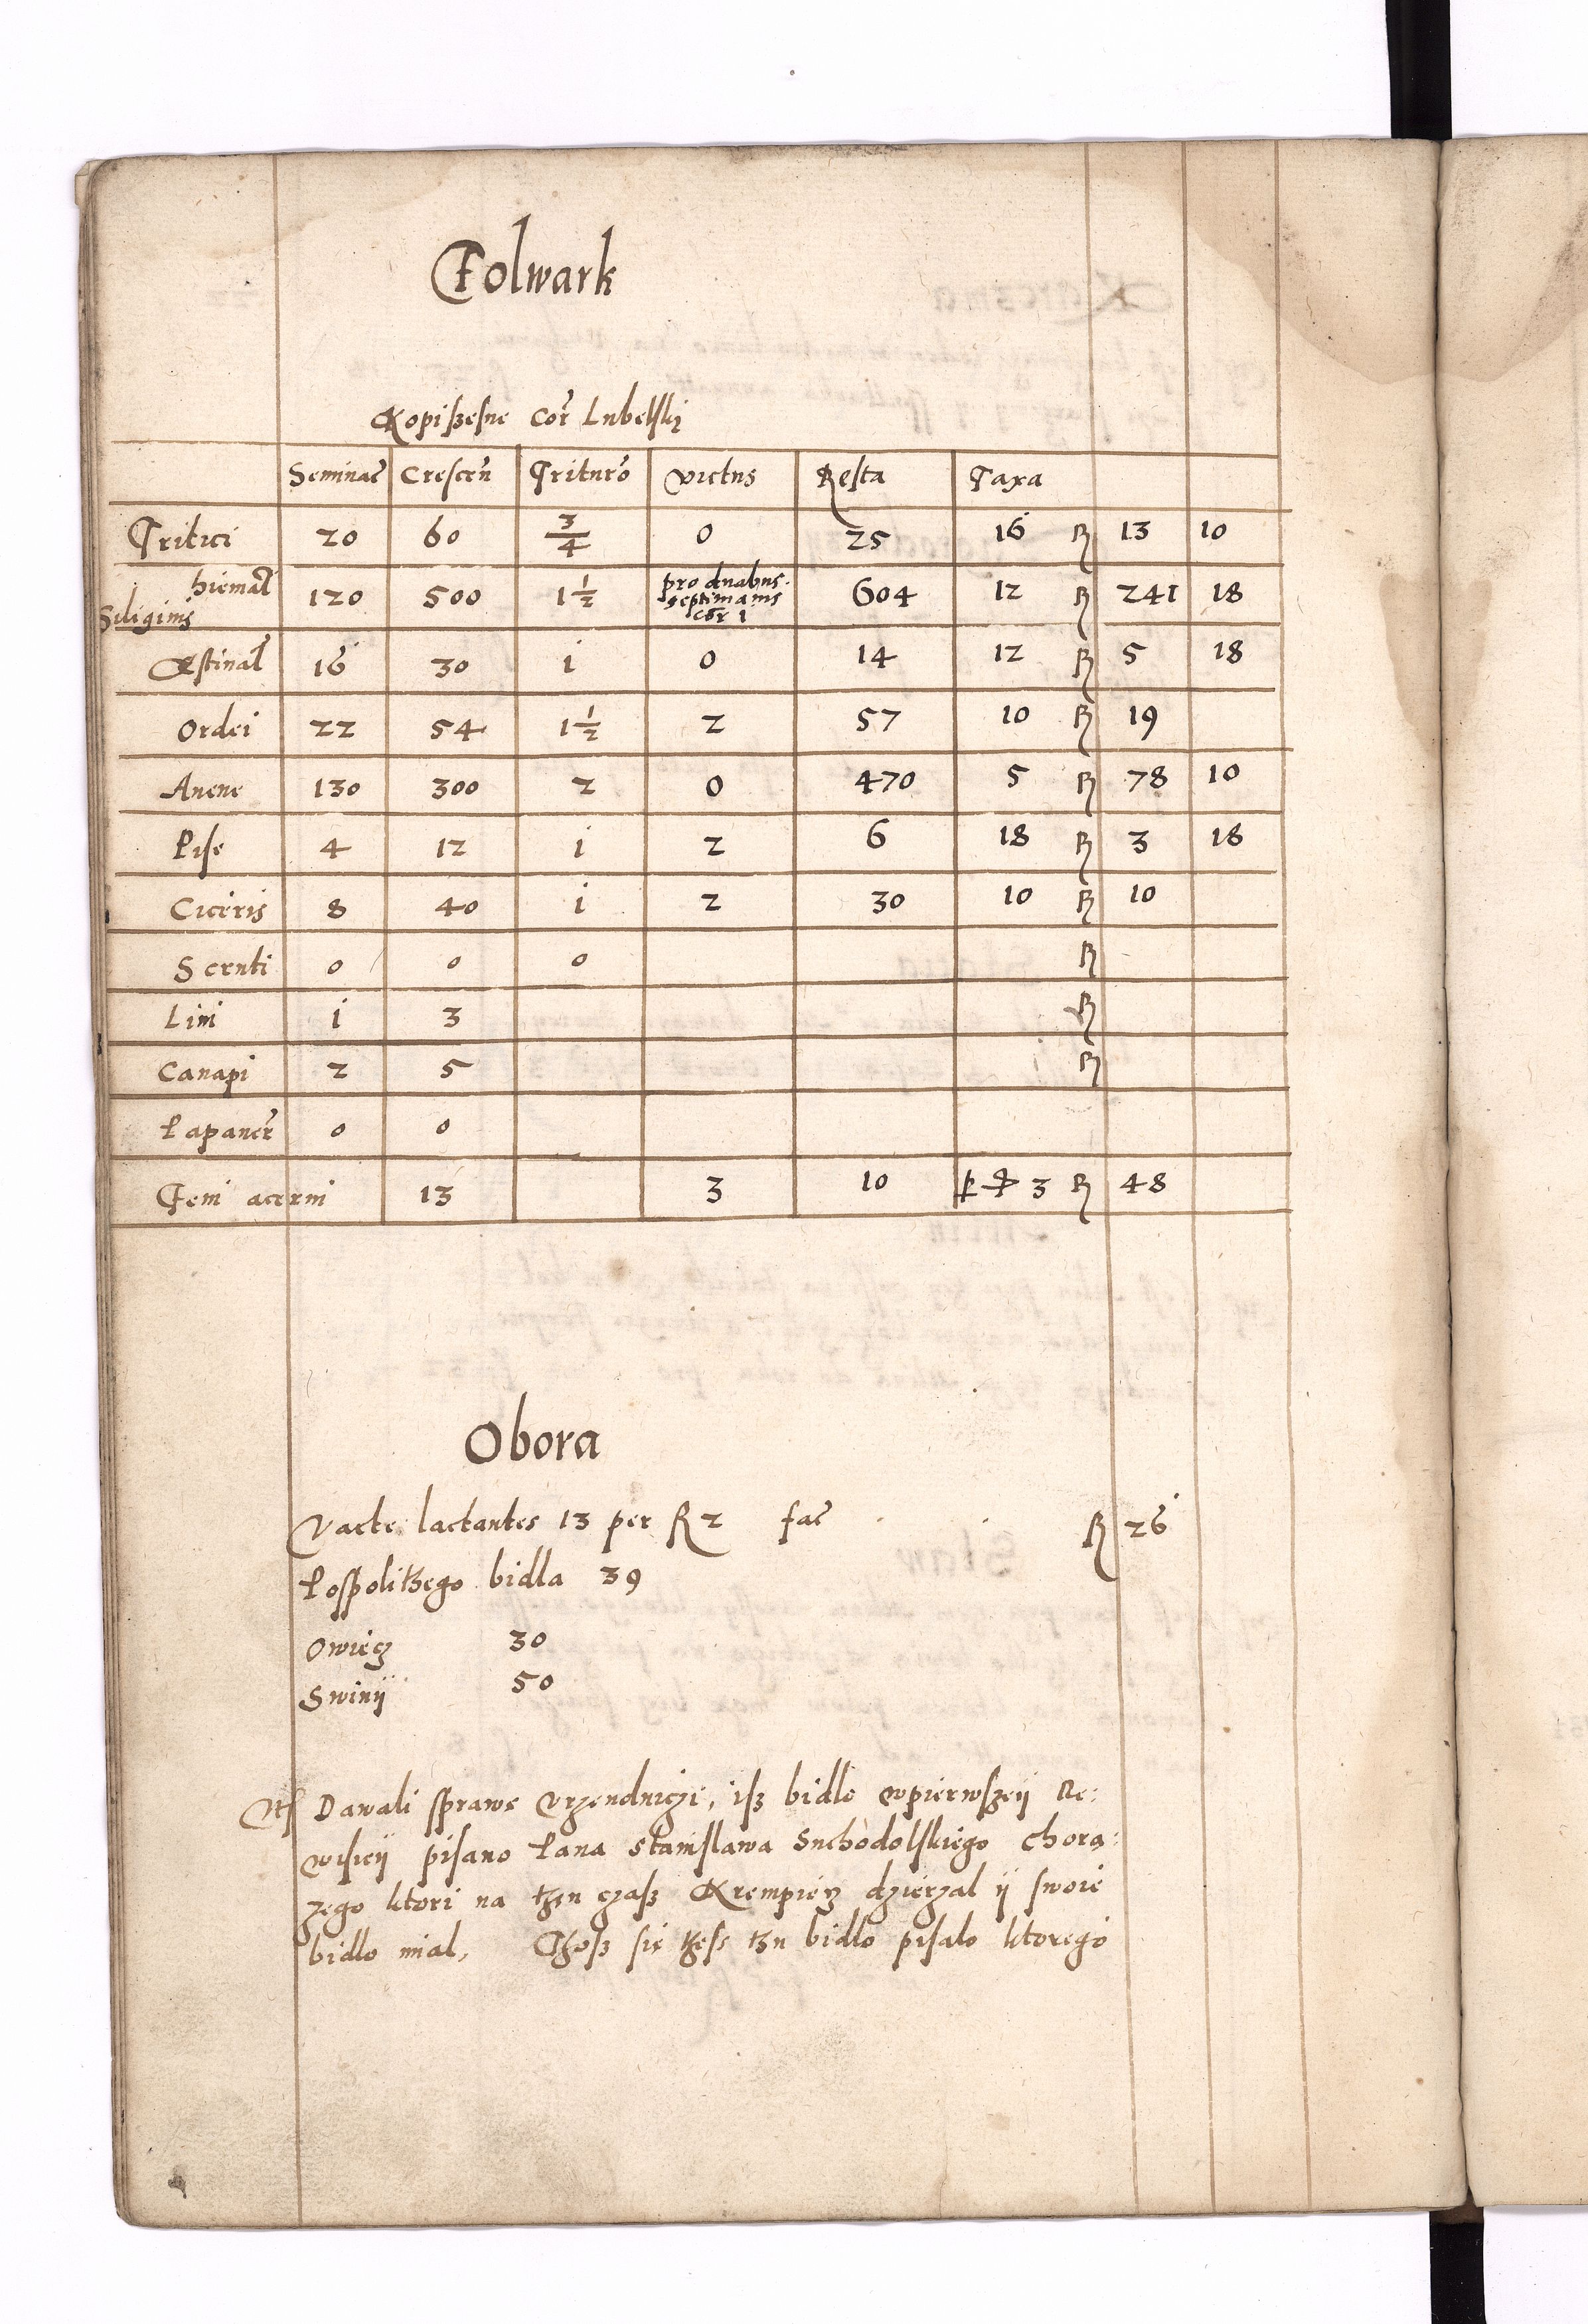 Folwark
Kopißesne Cor Lubelski
Seminać Crescen Trituro victus Resta Taxa
Tritici 20 60 3/4 0 25 16 R 13 10
Siliginis hiemal 120 500 1 1/2 pro duabus septimanis cor 1 604 12 R 241 18
Æstiual 16 30 i 0 14 12 R 5 18
Ordei 22 54 1 1/2 2 57 10 R 19
Auene 130 300 2 0 470 5 R 78 10
Pise 4 12 i 2 6 18 R 3 18
Ciceris 8 40 i 2 30 10 R 10
0 0 0 R
Lini i 3 R
Canapi 2 5 R
Papauer 0 0
Feni acerui 13 3 10 3 R 48
Obora
Vacce lactantes 13 per R 2 fać R 26
Pospolithego bidla 39
Owiecz 30
Swinÿ 50
Dawali sprawe vrzendniczi, isz bidlo wpierwszeÿ Re:
wisieÿ pisano Pana Stanislawa Suchodolskiego chora:
zego ktori na then czasz Krempiecz dzierzal ÿ swoie
bidlo mial, Thosz sie thess thu bidlo pisalo ktorego